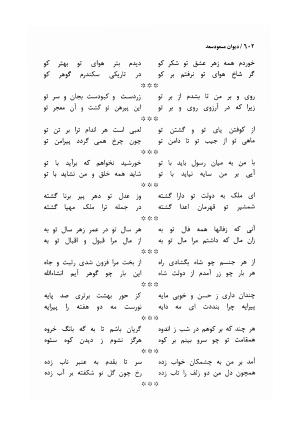 ۶۰۲ / دیوان مسعودسعد
خوردم همه زهر عشق تو شکر کو دیدم بتر هوای تو بهتر کو
گر شاخ هوای تو نرفتم بر کو در تاریکی سکندرم گوهر کو
***
روی و بر من تا بشدم از بر تو زردست و کبودست بجان و سر تو
زیرا که در آرزوی روی و بر تو این پیرهن تو گشت و آن معجر تو
***
از کوفتن پای تو و گشتن تو لعبی است هر اندام ترا بر تن تو
ماهی تو از جیب تو تا دامن تو چون چرخ همی گردد پیرامن تو
***
با من به میان رسول باید با تو خورشید نخواهم که برآید با تو
آیی بر من سایه نیاید با تو شاید همه خلق و من نشاید با تو
***
ای ملک به دولت تو دارا گشته وز عدل تو دهر پیر برنا گشته
شمشیر تو قهرمان اعدا گشته در جمله ترا ملک مهیا گشته
***
آنی که زفالها همه فال تو به هر سال تو در عمر زهر سال تو به
زان مال که داشتم مرا مال تو به از مال مرا قبول و اقبال تو به
***
از هر جنسم چو شاه بگشادی راه از بخت مرا فزون شدی رتبت و جاه
هر بار چو زر آمدم از دولت شاه این بار چو گوهر آیم انشاءالله
***
چندان داری ز حسن و خوبی مایه کز حور بهشت برتری صد پایه
پیرایه چرا بنددت ای مه دایه نورست مه دو هفته را پیرایه
***
هر چند که بر کوهم در شب ز اندوه گریان باشم تا به گه بانگ خروه
همقامت تو چو سرو بینم بر کوه هرگز نشوم ز دیدن کوه ستوه
***
آمد بر من به چشمکان خواب زده سر تا بقدم به عنبر ناب زده
همچون دل من دو زلف را تاب زده رخ چون گل نو شکفته بر آب زده
***